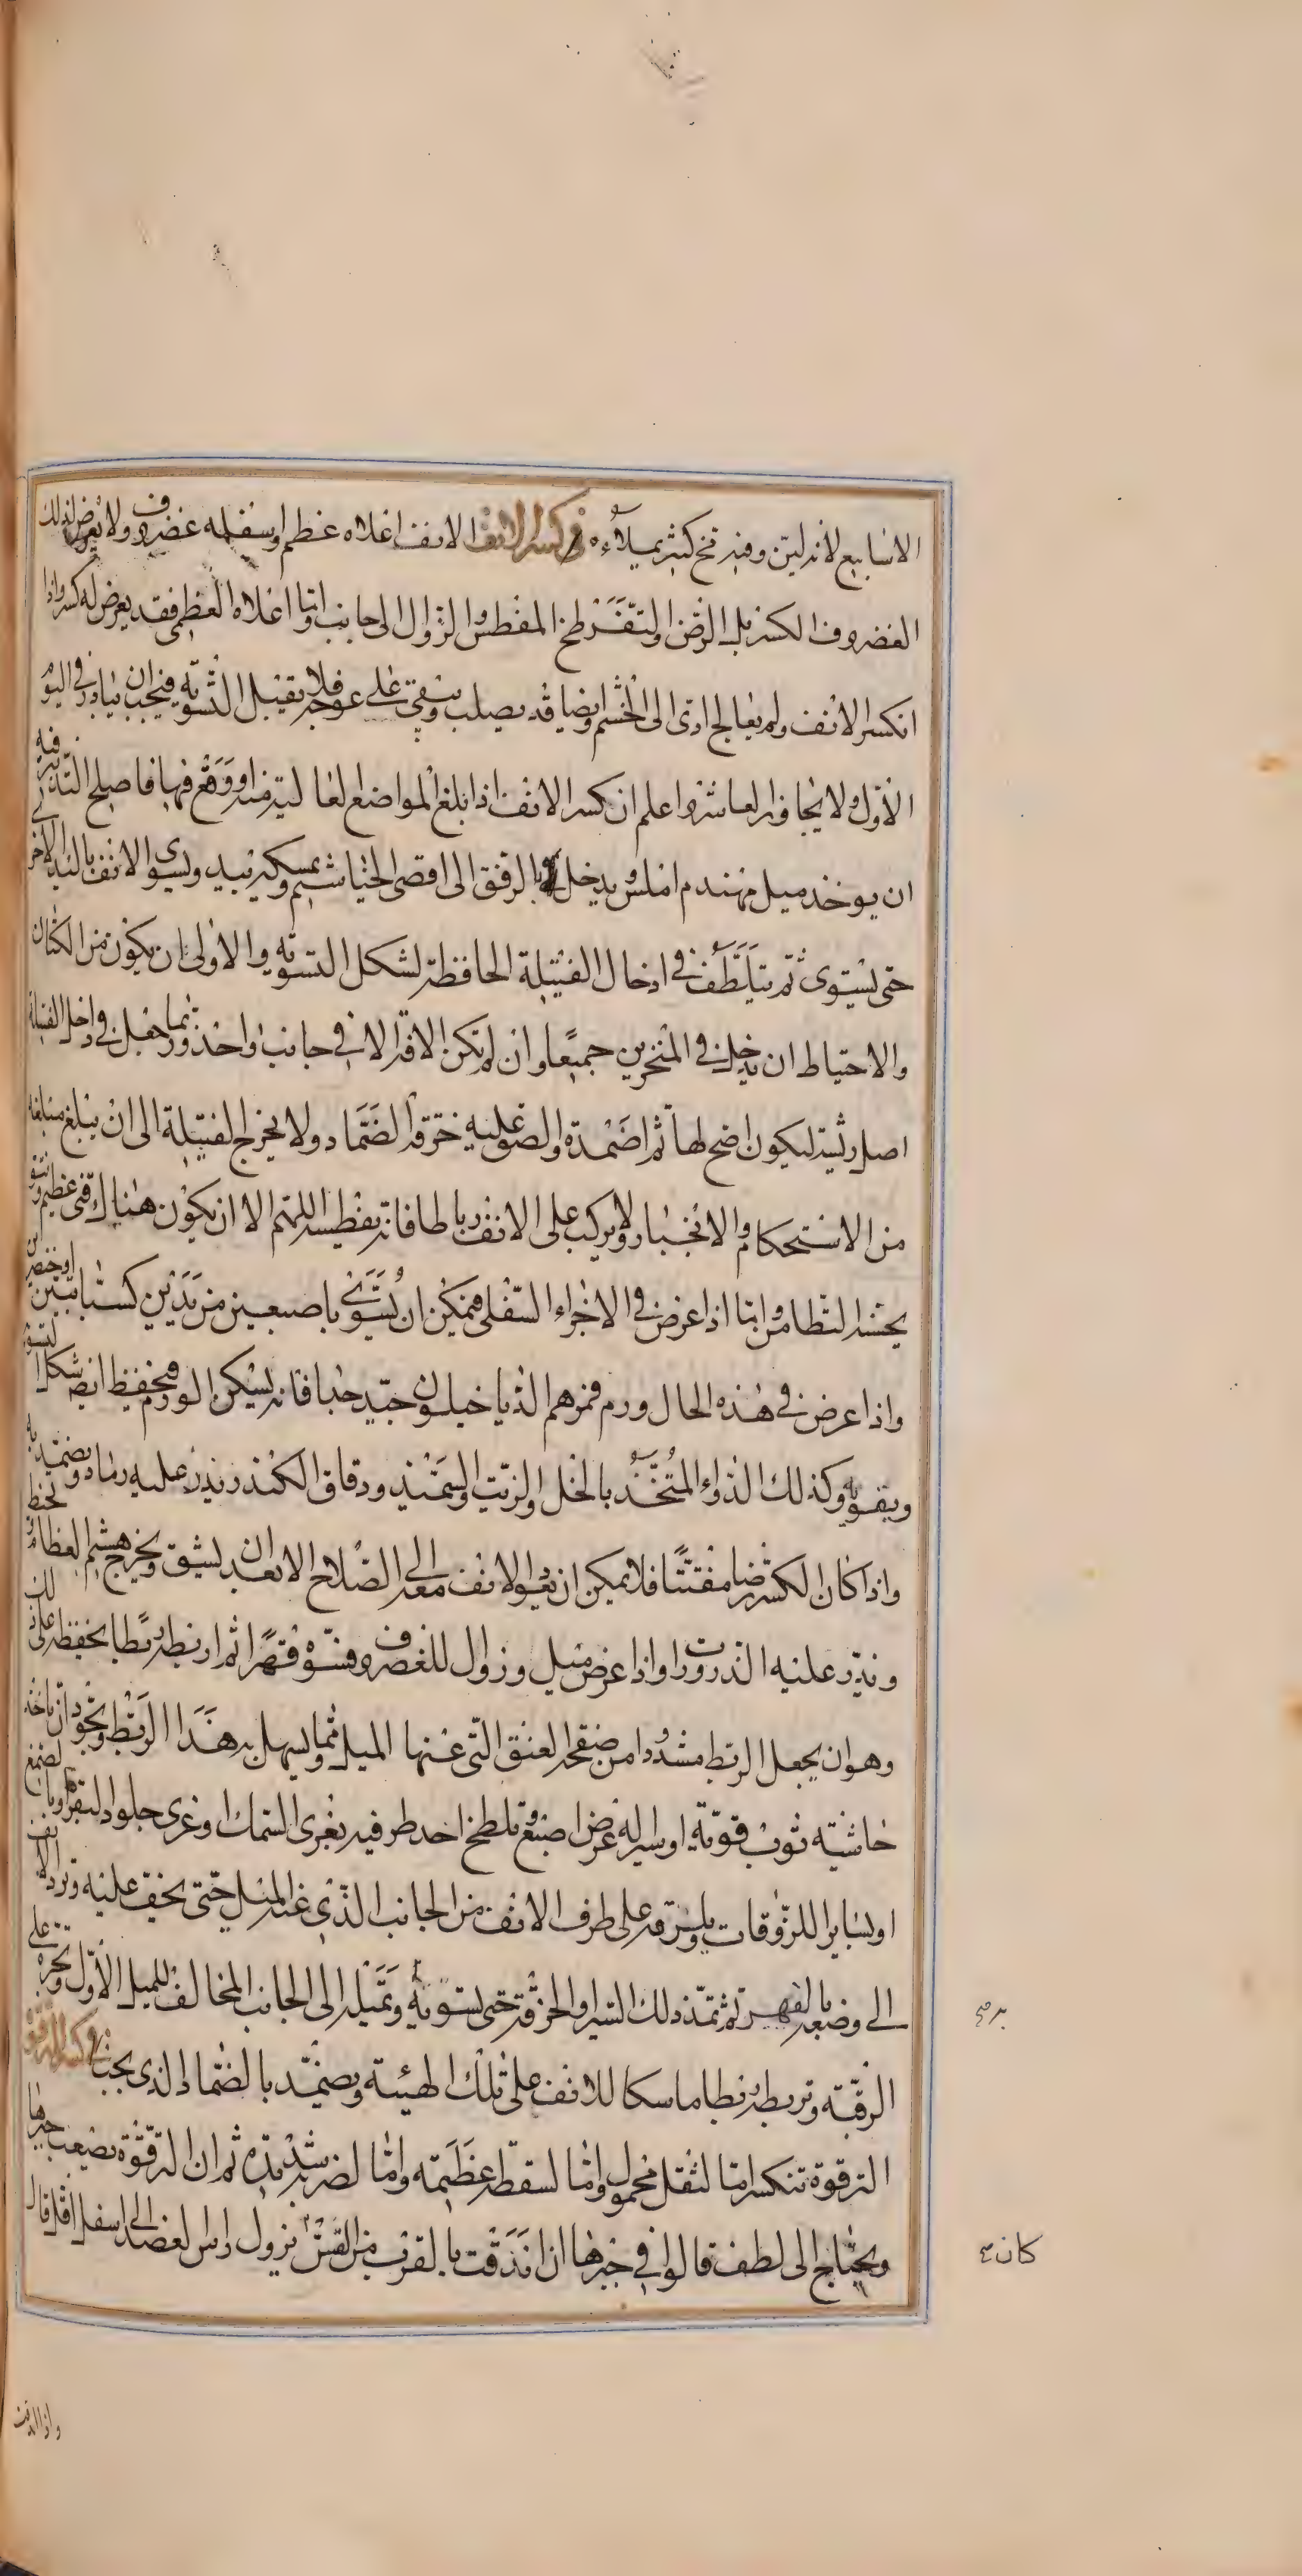 الاسابيع لانه لين وفيه مخ كثير يملاءه في كسر الانف الانف اعلاه عظم واسفله غضروف ولا يعرض لذلك
الغضروف الكسر بل الرض والتفرطخ المفطس والزوال الى جانب واما اعلاه العظمي فقد يعرض له كسر واذا
انكسر الانف ولم يعالج ادى الى الخشم وايضا قد يصلب ويبقى على عوجه فلا يقبل التسوية فيجب ان يبادر في اليوم
الاول ولا يجاوز العاشر واعلم ان كسر الانف اذا بلغ المواضع العالية منه او وقع فيها فاصلح التدبير فيه
ان يوخذ ميل مهندم املس ويدخل بالرفق الى اقصى الخياشيم ويمسك بيد ويسوى الانف باليد الاخرى
حتى يستوى ثم يتلطف في ادخال الفتيلة الحافظة لشكل التسوية والاولى ان يكون من الكتان
والاحتياط ان يدخل في المنخرين جميعا وان لم تكن الافة الا في جانب واحد وربما جعل في داخل الفتيلة
اصل ريشة ليكون اصح لها ثم اضمده والصق عليه خرقة الضماد ولا يخرج الفتيلة الى ان يبلغ مبلغه
من الاستحكام والانجبار ولا يركب على الانف رباطا فانه يفطسه اللهم الا ان يكون هناك نتو عظيم
واما اذا عرض في الاجزاء السفلى فيمكن ان يسوى باصبعين من يدين كسبابتين او خنصرين
واذا عرض في هذه الحال ورم فمرهم الدياخيلون جيد جدا فانه يسكن الورم ويحفظ ايضا شكل التسوية
ويقويه وكذلك الدواء المتخذ بالخل والزيت والسميد ودقاق الكندر يذر عليه رماد ويضمد به
واذا كان الكسر رضا مفتتا فلا يمكن ان يعود الانف معه الى الصلاح الا بعد ان يشق ويخرج هشيم العظام
ويذر عليه الذرورات واذا عرض ميل وزوال للغضروف فسوه قهرا ثم اربطه ربطا يحفظه على ذلك
وهو ان يجعل الربط مشدودا من صفحة العنق التي عنها الميل ومما يسهل به هذا الربط ويجود ان ياخذ
حاشية ثوب قوية او سيرا له عرض اصبع وتلطخ احد طرفيه بغرى السمك او غرى جلود البقر او بالصمغ
او بساير اللزوقات ويلزقه على طرف الانف من الجانب الذي عنه الميل حتى يجف عليه وترد الانف
الى وضعه بالقهر ثم تمد ذلك السير او الخرقة حتى تسويه وتميله الى الجانب المخالف للميل الاول وتجره على
الرقبة وتربطه ربطا ماسكا للانف على تلك الهيئة ويضمد بالضماد الذي يجب في كسر الترقوة
الترقوة تنكسر اما لثقل محمول واما لسقطة عظيمة واما لضربة شديدة ثم ان الترقوة يصعب جبرها
ويحتاج الى لطف قالوا في جبرها ان اندقت بالقرب من القس نزول راس العضد الى اسفل اقل قال
كان
واذا اندقت